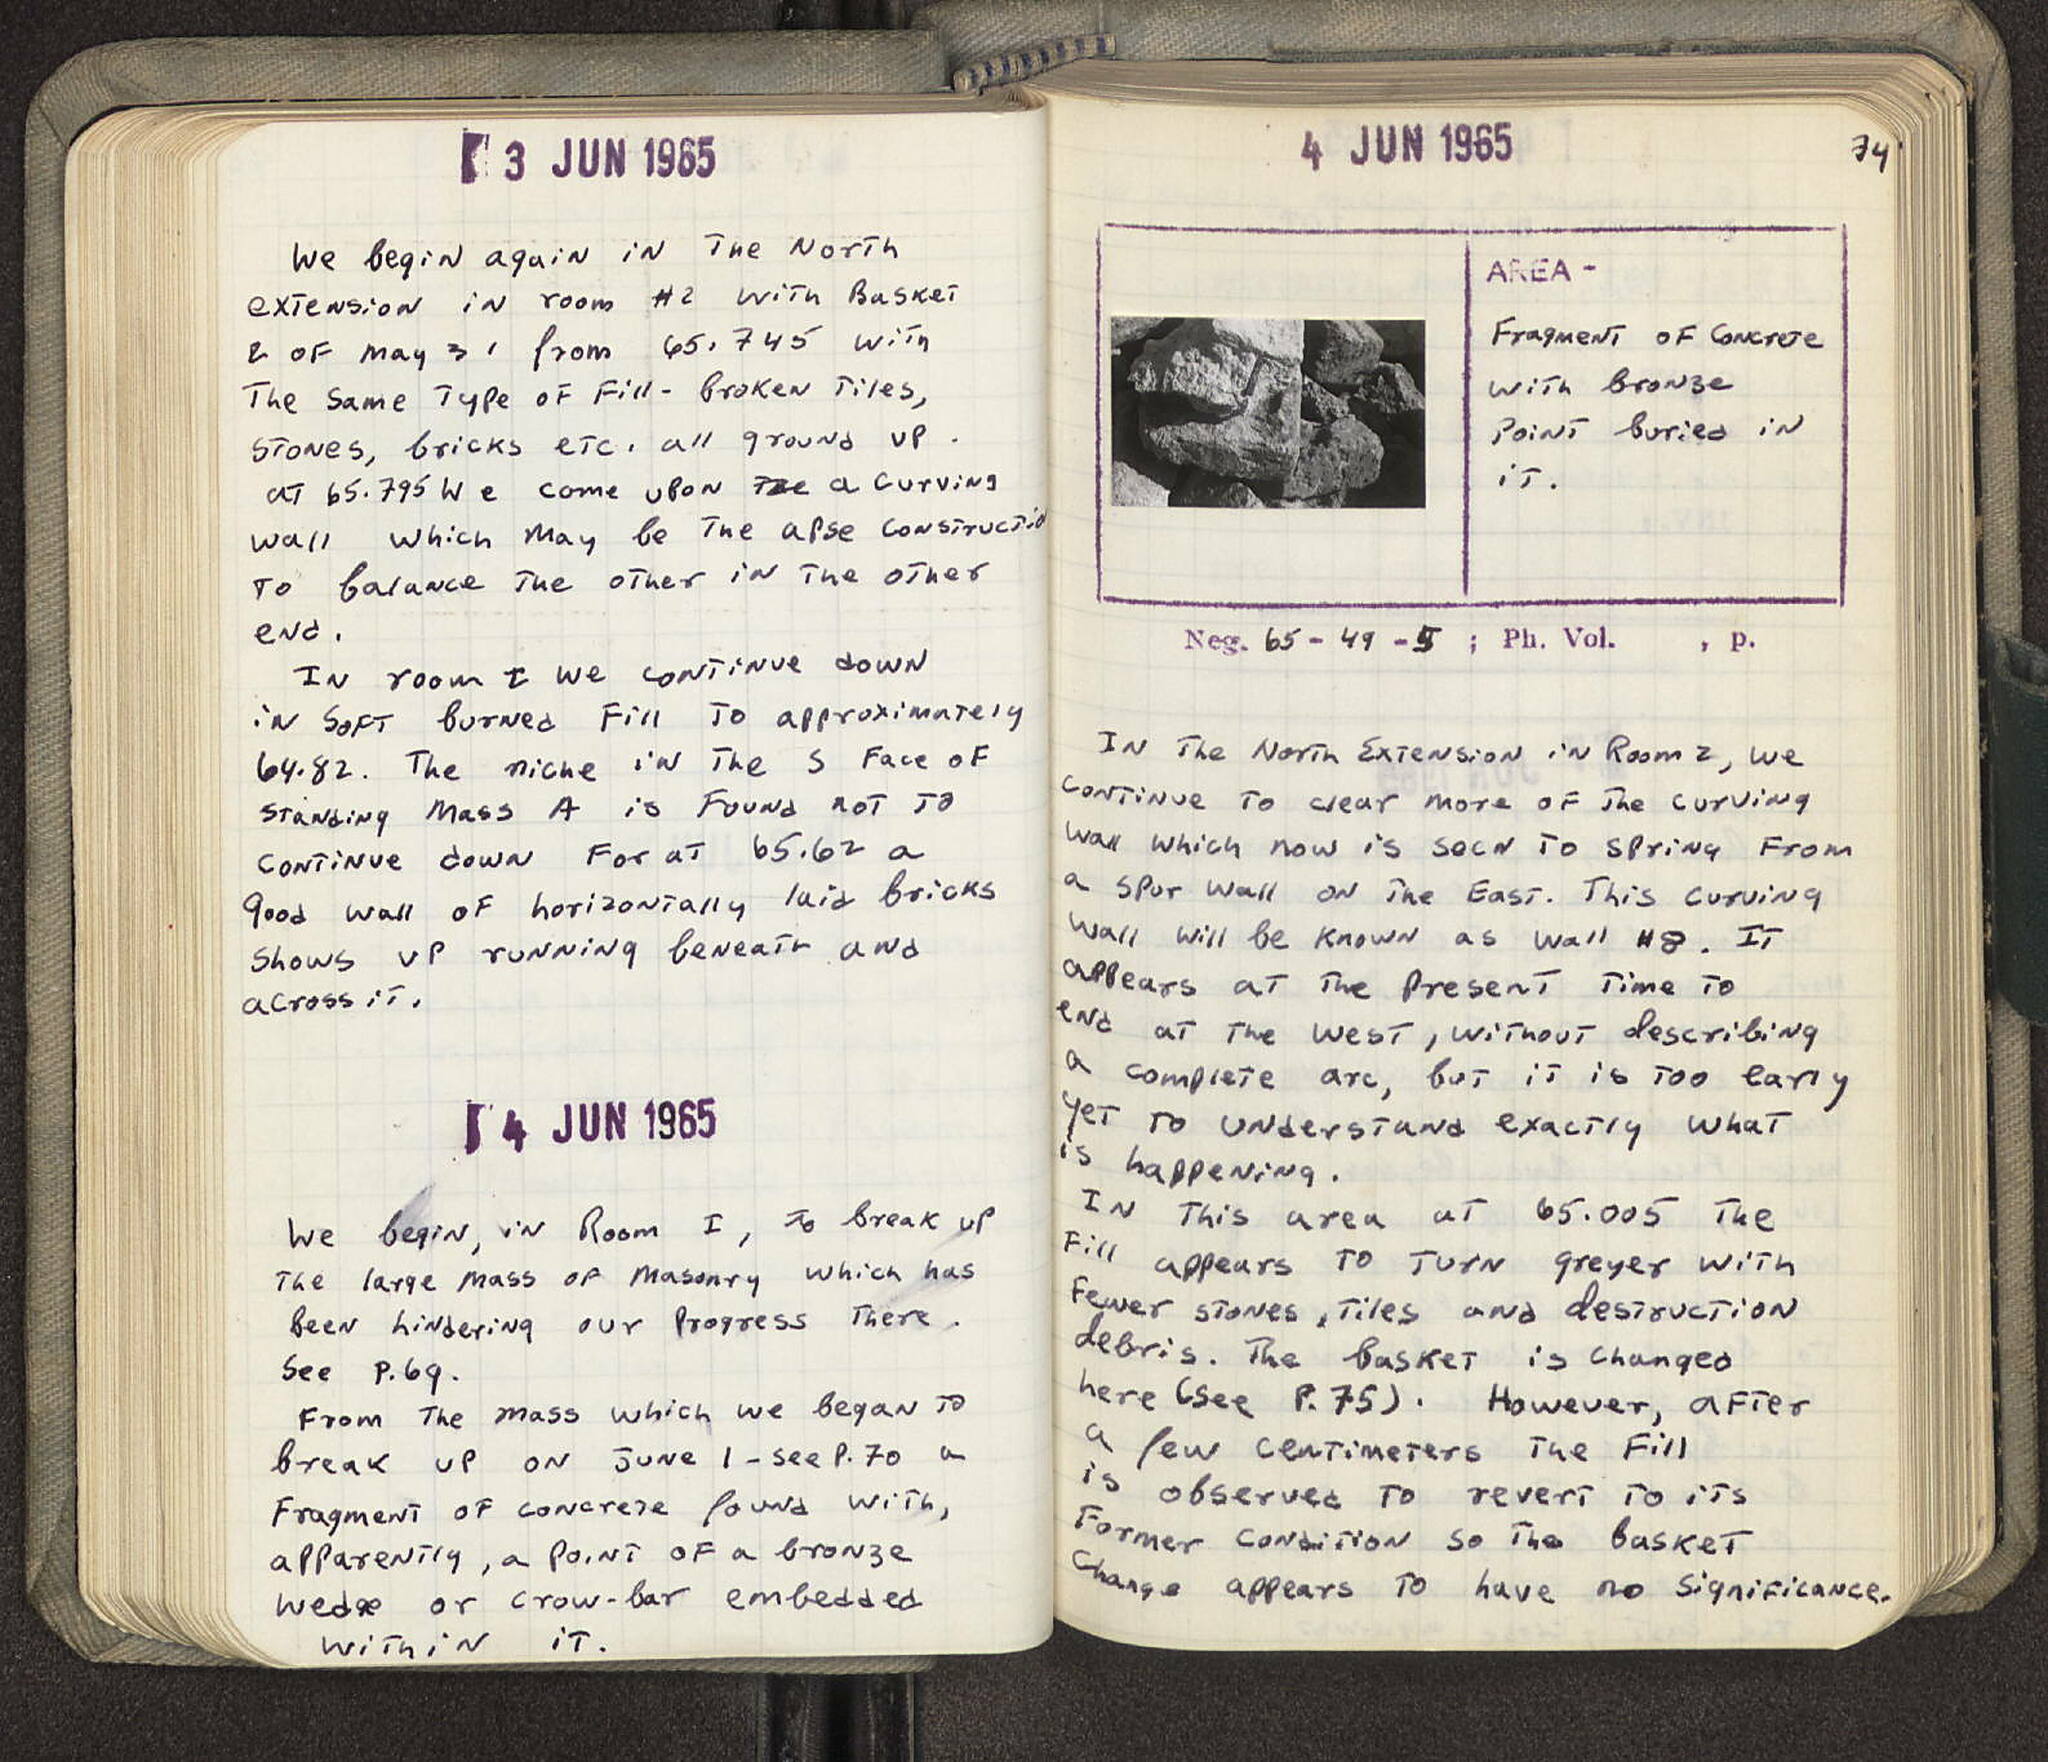 3 JUN 1965
We begin again in the North
extension in room #2 with Basket
2 of May 31 from 65.745 with
the same type of fill - broken tiles,
stones, bricks etc. all ground up.
at 65.795 We come upon the a curving
wall which may be the apse constructio
to balance the other in the other
end.
In room I we continue down
in soft burned fill to approximately
64.82. The niche in the S Face of
standing Mass A is found not to
continue down for at 65.62 a
good wall of horizontally laid bricks
shows up running beneath and
across it.
4 JUN 1965
We begin, in Room I, to break up
the large mass of masonry which has
been hindering our progress there.
See P.69.
From the mass which we began to
break up on June 1 - see P.70 a
Fragment of concrete found with,
apparently, a point of a bronze
wedge or crow-bar embedded
within it.
4 JUN 1965
74
AREA -
Fragment of Concrete
with bronze
point buried in
it.
Neg. 65-49-5 ; Ph. Vol. , p.
In the North Extension in Room 2, we
continue to clear more of the curving
wall which now is seen to spring from
a spur wall on the East. This curving
wall will be known as wall #8. It
appears at the present time to
end at the West, without describing
a complete arc, but it is too early
yet to understand exactly what
is happening.
In this area at 65.005 the
fill appears to turn greyer with
fewer stones, tiles and destruction
debris. The basket is changed
here (see P.75). However, after
a few centimeters the fill
is observed to revert to its
former condition so the basket
change appears to have no significance.